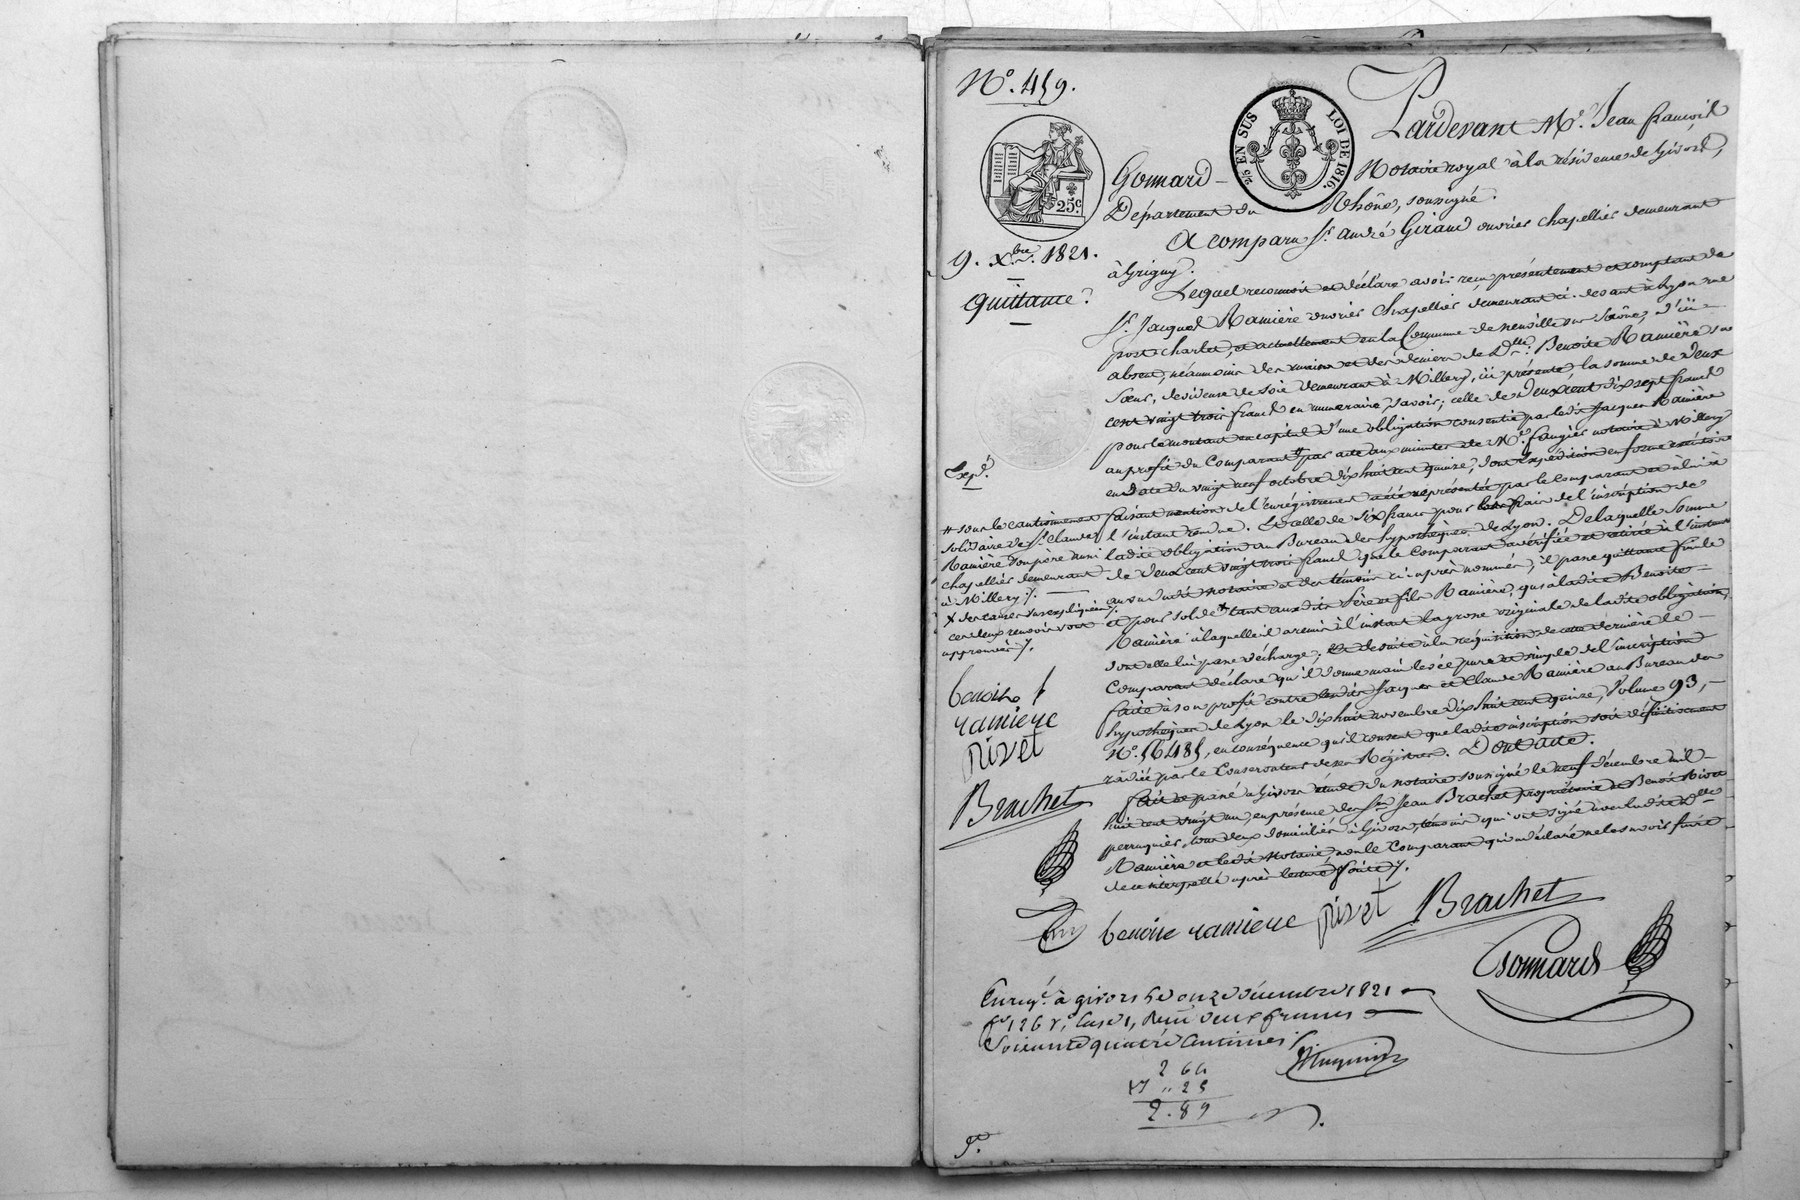 N.° 459.
2/5 EN SUS LOI DE 1816.
25.c
9. Xbre. 1821.
Quittance.
Expé.
Pardevant Me. Jean françois
Gonnard – Notaire royal à la résidence de Givors,
Département du Rhône, soussigné.
A comparu Sr. andré Giraud ouvrier chapellier demeurant
à Grigny.
Lequel reconnoit et déclare avoir reçu présentement et comptant de
Sr. Jacques Ramière ouvrier Chapellier demeurant ci-devant à Lyon rue
port charlet, et actuellement en la Commune de neuville sur Saône, d'ici –
absent, néanmoins des mains et des deniers de Dlle. Benoite Ramière sa
Sœur, dévideuse de soie demeurant à Millery, ici présente la somme de Deux
cent vingt trois francs en numéraire, savoir; celle de Deux cent dix sept francs
pour le montant en capital d'une obligation consentie par ledit Jacques Ramière
au profit du Comparant # par acte aux minutes de Me. faugier notaire à Millery
en date du vingt neuf octobre dix huit cent quinze, dont Expédition en forme exécutoire
faisant mention de l'enrégistrement a été représentée par le comparant et à lui à
l'instant rendue. Et celle de six francs pour les frais de l'inscription de
ladite obligation au Bureau des hypothèques de Lyon. De laquelle somme
de Deux cent vingt trois francs que le Comparant a vérifiée et retirée à l'instant
au vu dudit notaire et des témoins ci-après nommés, il passe quittance finale
et pour solde x tant auxdits Père et fils Ramière, qu'à ladite Benoite –
Ramière à laquelle il a remis à l'instant la grosse originale de ladite obligation,
dont elle lui passe décharge. Et de suite à la réquisition de cette dernière le –
Comparant déclare qu'il donne main levée pure et simple de l'inscription
faite à son profit contre lesdits Jacques et Claude Ramière au Bureau des
hypothèques de Lyon le dix huit novembre dix huit cent quinze, Volume 93, –
N.° 56485, en conséquence qu'il consent que ladite inscription soit définitivement
radiée par le Conservateur de ses Régistres. Dont acte.
fait et passé à Givors étude du notaire soussigné le neuf décembre mil –
huit cent vingt un, en présence des srs. Jean Brachet propriétaire et Benoît Rivet
perruquier, tous deux domiciliés à Givors, témoins qui ont signé avec ladite Dlle
Ramière et ledit Notaire, non le Comparant qui a déclaré ne le savoir faire
de ce interpellé après lecture faite ./.
# sous le cautionnement
solidaire de Sr. Claude
Ramière son père aussi
chapellier demeurant
à Millery ./.
x des causes sus expliquées
ces deux renvois sont
approuvés ./.
benoite
ramiere
Rivet
Brachet
benoite ramiere Rivet Brachet
Gonnard
Enregé. à givors le onze décembre 1821
f° 126 r.° Case 1, Reçu deux francs
Soixante quatre Centimes
2 64
" 25
2. 89